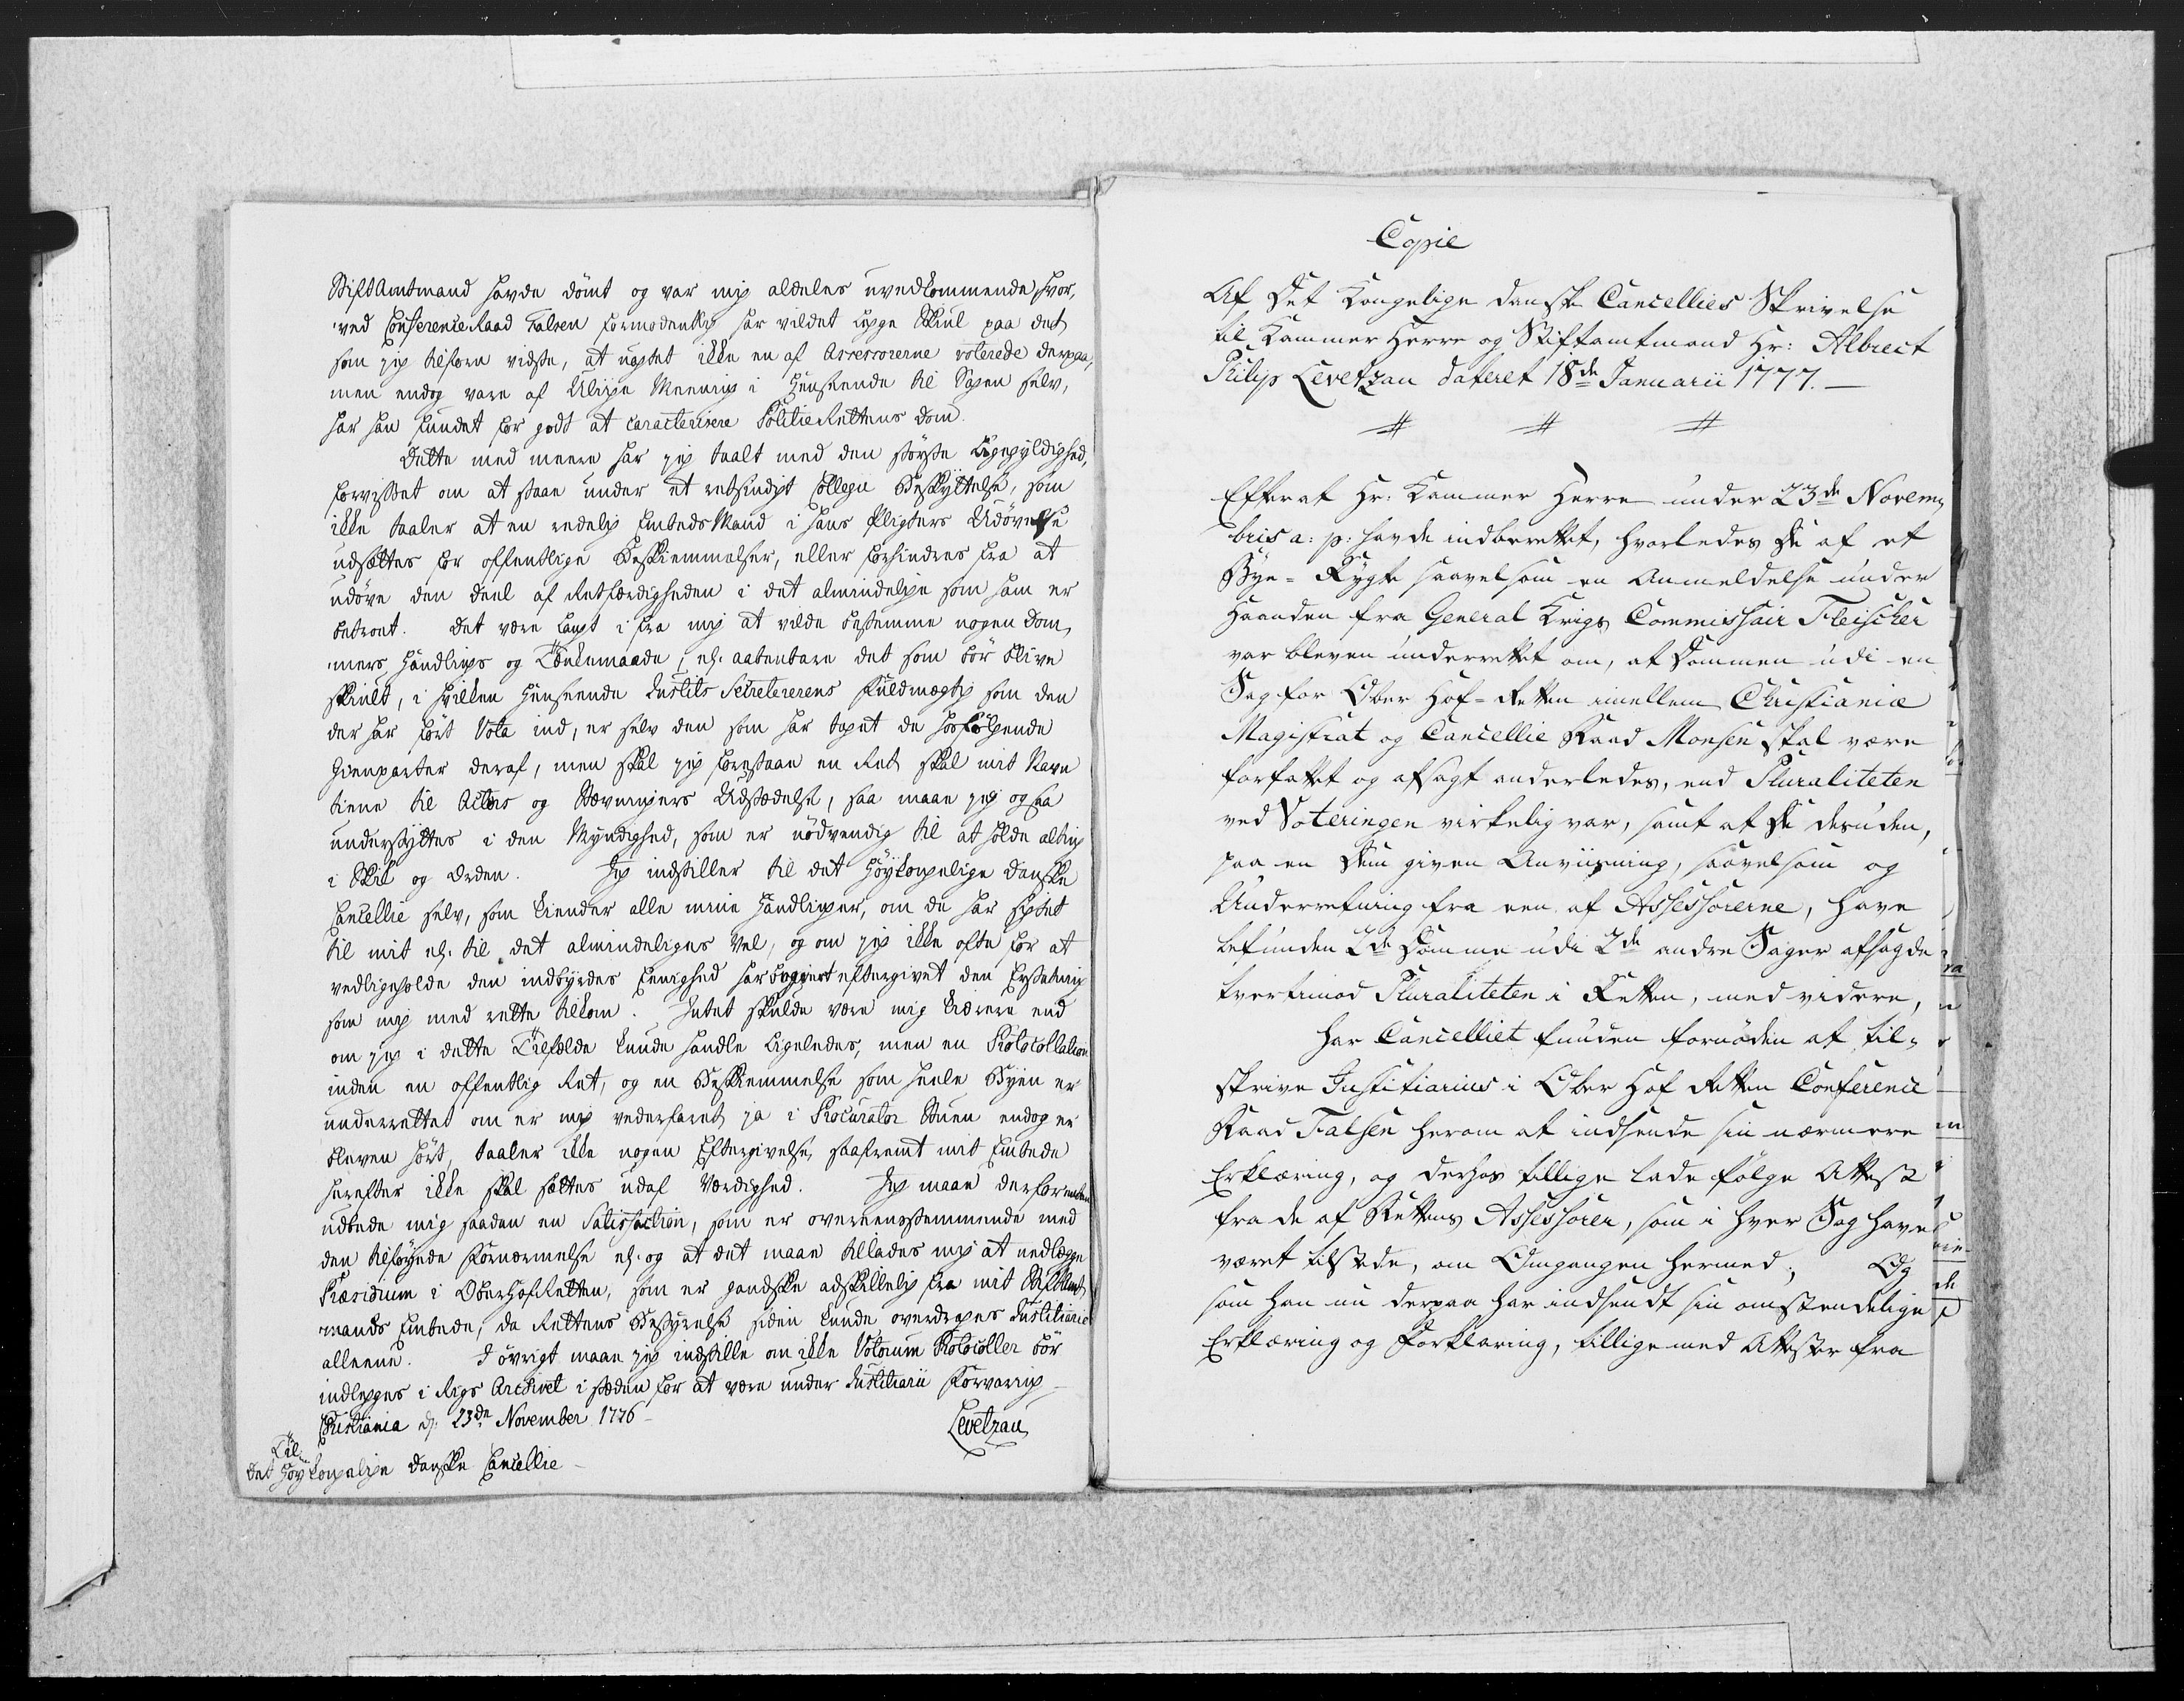 StiftAmtmand havde dömt og var mig aldeles uvedkommende hvor,
ved Conference Raad Falsen formodentlig har vildet legge Skiul paa det
som jeg tilforn vidste, at uagtet ikke en af Assessorerne voterede derpaa,
men endog vare af Uliige Meening i Henseende til Sagen selv,
har han fundet for godt at caracterisere Politie Rettens Dom.
Dette med meere har jeg taalt med den störste Ligegyldighed,
forvisset om at staae under et retsindigt Collegii Beskyttelse, som
ikke taaler at en redelig Embeds Mand i hans Pligters Udövelse
udsættes for offentlige Beskiemmelser, eller forhindres fra at
udöve den deel af Retfærdigheden i det almindelige som ham er
betroet. Det være langt i fra mig at vilde bestemme nogen Dom,
mers Handlings og Tænkemaade, eh. aabenbare det som bör blive
skiult, i hvilken Henseende Justits Secretererens Fuldmægtig som den
der har fört Vota ind, er selv den som har taget de hosfölgende
Gienparter deraf, men skal jeg forestaae en Ret, skal mit Navn
tiene til Acters og Stævningers Udstædelse, saa maae jeg ogsaa
understyttes i den Myndighed, som er nödvendig til at holde alting
i Skik og Orden. Jeg indstiller til det Höykongelige Danske
Cancellie selv, som kiender alle mine Handlinger, om de har sigtet
til mit eh. til det almindeliges Vel, og om jeg ikke ofte for at
vedligeholde den indbyrdes Eenighed har eftergivet den Erstatning
som mig med rette tilkom. Intet skulde være mig kiærere end
om jeg i dette Tilfælde kunde handle ligeledes, men en Protocollation
inden en offentlig Ret, og en Beskiemmelse som heele Byen er
underrettet om er mig vederfaret, ja i Procurator Stuen endog er
bleven hört, taaler ikke nogen Eftergivelse, saafremt mit Embede
herefter ikke skal sættes udaf Værdighed. Jeg maae derfor
udbede mig saadan en Satisfaction, som er overeensstemmende med
den tilföyede Fornærmelse eh. og at det maae tillades mig at nedlægge
Præsidium i OberHofRetten, som er gandske adskillelig fra mit StiftAmt,
mands Embede, da Rettens Bestyrelse siden kunde overdrages Justitiario
alleene. I övrigt maae jeg indstille om ikke Votorum Protocoller bör
indlegges i Rigs Archivet i stæden for at være under Justitiarii Forvaring
Christiania d: 23de November 1776
Levetzau
Til
Det Höykongelige Danske Cancellie
Copie
Af Det Kongelige danske Cancellies Skrivelse
til Kammer Herre og Stiftamtmand Hr: Albrect
Philip Levetzau dateret 18de Januarii 1777.
Efterat Hr: Kammer Herre under 23de Novem,
bris a: p: havde indberettet, hvorledes De af et
Bye-Rygte saavelsom en Anmeldelse under
Haanden fra General Krigs Commissair Fleischer
var bleven underrettet om, at Dommen udi en
Sag for Ober Hof-Retten imellem Christianiæ
Magistrat og Cancellie Raad Monsen skal være
forfattet og afsagt anderledes, end Pluraliteten
ved Voteringen virkelig var, samt at De desuden,
paa en Dem given Anviisning, saavelsom og
Underretning fra een af Assessorerne, have
befunden 2de Domme udi 2de andre Sager afsagde
tvertimod Pluraliteten i Retten, med videre,
har Cancelliet funden fornöden at til,
skrive Justitiarius i Ober Hof Retten Conference
Raad Falsen herom at indsende sin nærmere
Erklæring, og derhos tillige lade fölge Attest
fra de af Rettens Assessorer, som i hver Sag have
været tilstede, om Omgangen hermed; Og
som han nu derpaa har indsendt sin omstendelige
Erklæring og Forklaring, tillige med Attester fra